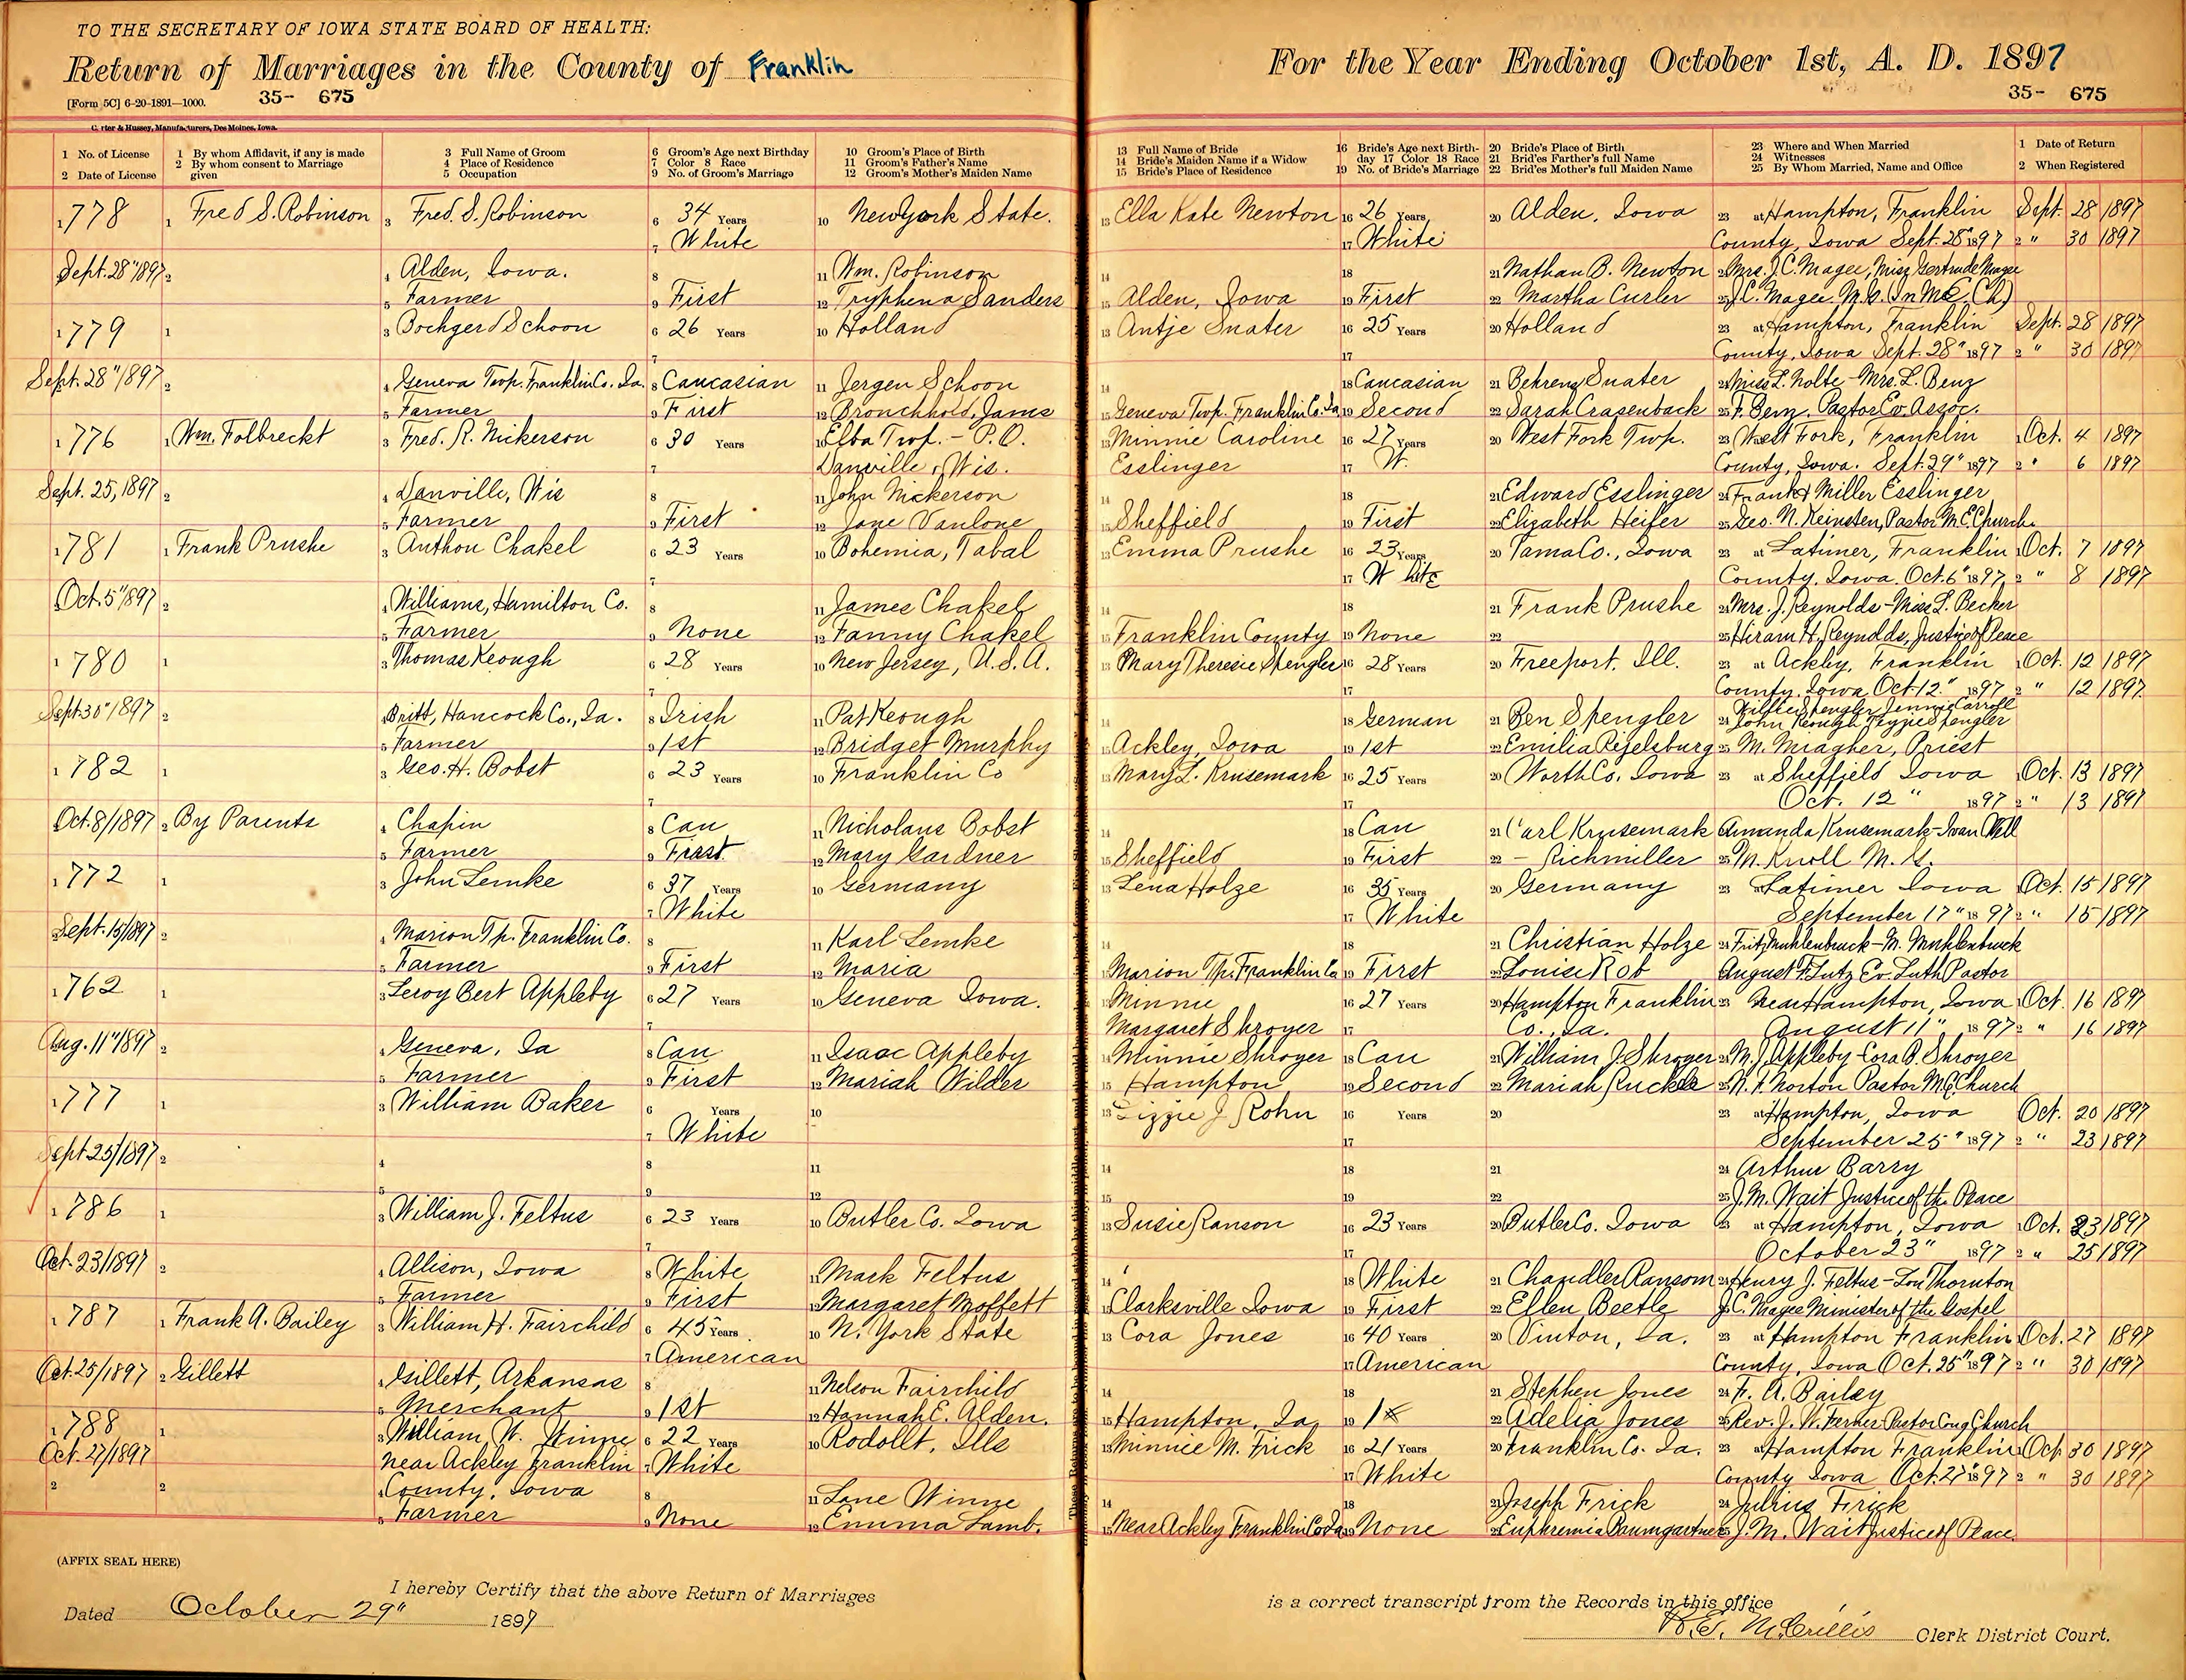 TO THE SECRETARY OF IOWA STATE BOARD OF HEALTH:
Return of Marriages in the County of Franklin
[Form 5C] 6-20-1891—1000. 35- 675
Carter & Hussey, Manufacturers, Des Moines, Iowa.
For the Year Ending October 1st, A. D. 1897
35- 675
1 No. of License
2 Date of License
1 By whom Affidavit, if any is made
2 By whom consent to Marriage given
3 Full Name of Groom
4 Place of Residence
5 Occupation
6 Groom's Age next Birthday
7 Color 8 Race
9 No. of Groom's Marriage
10 Groom's Place of Birth
11 Groom's Father's Name
12 Groom's Mother's Maiden Name
13 Full Name of Bride
14 Bride's Maiden Name if a Widow
15 Bride's Place of Residence
16 Bride's Age next Birth-
day 17 Color 18 Race
19 No. of Bride's Marriage
20 Bride's Place of Birth
21 Brid'es Farther's full Name
22 Brid'es Mother's full Maiden Name
23 Where and When Married
24 Witnesses
25 By Whom Married, Name and Office
1 Date of Return
2 When Registered
1 778 1 Fred S. Robinson 3 Fred. S. Robinson 6 34 Years 10 New York State. 13 Ella Kate Newton 16 26 Years 20 Alden, Iowa 23 at Hampton, Franklin Sept. 28 1897
7 White 17 White County, Iowa Sept. 28" 1897 2 " 30 1897
Sept. 28" 1897 2 4 Alden, Iowa. 8 11 Wm. Robinson 14 18 21 Nathan B. Newton 24 Mrs. J. C. Magee, Miss Gertrude Magee
5 Farmer 9 First 12 Tryphena Sanders 15 Alden, Iowa 19 First 22 Martha Curler 25 J. C. Magee M. G. (In M. E. Ch)
1 779 1 3 Bochgerd Schoon 6 26 Years 10 Holland 13 Antje Suater 16 25 Years 20 Holland 23 at Hampton, Franklin Sept. 28 1897
7 17 County, Iowa Sept. 28" 1897 2 " 30 1897
Sept. 28" 1897 2 4 Geneva Twp. Franklin Co. Ia. 8 Caucasian 11 Jergen Schoon 14 18 Caucasian 21 Behrens Suater 24 Miss L. Nolte - Mrs. L. Benz
5 Farmer 9 First 12 Bronchhold, Jams 15 Geneva Twp. Franklin Co. Ia 19 Second 22 Sarah Crasenback 25 F. Benz, Pastor Ev. Assoc.
1 776 1 Wm. Folbreckt 3 Fred. R. Nickerson 6 30 Years 10 Elba Twp. - P. O. 13 Minnie Caroline 16 27 Years 20 West Fork Twp. 23 West Fork, Franklin 1 Oct. 4 1897
7 Danville, Wis. Esslinger 17 W. County, Iowa. Sept. 29" 1897 2 " 6 1897
Sept. 25, 1897 2 4 Danville, Wis 8 11 John Nickerson 14 18 21 Edward Esslinger 24 Frank & Miller Esslinger
5 Farmer 9 First 12 Jane Vanlone 15 Sheffield 19 First 22 Elizabeth Heifer 25 Geo. N. Keinsten, Pastor M. E. Church
1 781 1 Frank Prushe 3 Anthon Chakel 6 23 Years 10 Bohemia, Tabal 13 Emma Prushe 16 23 Years 20 Tama Co., Iowa 23 at Latimer, Franklin 1 Oct. 7 1897
7 17 White County, Iowa. Oct. 6" 1897 2 " 8 1897
Oct. 5" 1897 2 4 Williams, Hamilton Co. 8 11 James Chakel 14 18 21 Frank Prushe 24 Mrs. J. Reynolds - Miss L. Becker
5 Farmer 9 None 12 Fanny Chakel 15 Franklin County 19 None 22 25 Hiram H. Reynolds, Justice of Peace
1 780 1 3 Thomas Keough 6 28 Years 10 New Jersey, U. S. A. 13 Mary Theresie Spengler 16 28 Years 20 Freeport, Ill. 23 at Ackley, Franklin 1 Oct. 12 1897
7 17 County, Iowa Oct. 12" 1897 2 " 12 1897
Sept. 30" 1897 2 4 Britt, Hancock Co., Ia. 8 Irish 11 Pat Keough 14 18 German 21 Ben Spengler 24 Willie Spengler Jennie Carroll
John Keough Tezzie Spengler
5 Farmer 9 1st 12 Bridget Murphy 15 Ackley, Iowa 19 1st 22 Emilia Regelsburg 25 M. Miagher, Priest
1 782 1 3 Geo. H. Bobst 6 23 Years 10 Franklin Co 13 Mary L. Krusemark 16 25 Years 20 Worth Co. Iowa 23 at Sheffield Iowa 1 Oct. 13 1897
7 17 Oct. 12" 1897 2 " 13 1897
Oct. 8/1897 2 By Parents 4 Chapin 8 Cau 11 Nicholaus Bobst 14 18 Cau 21 Carl Krusemark Amanda Krusemark - Ivan Well
5 Farmer 9 First 12 Mary Gardner 15 Sheffield 19 First 22 - Richmiller 25 M. Knoll M. G.
1 772 1 3 John Lemke 6 37 Years 10 Germany 13 Lena Holze 16 35 Years 20 Germany 23 at Latimer Iowa Oct. 15 1897
7 White 17 White September 17" 1897 2 " 15 1897
Sept. 15/1897 2 4 Marion Tp. Franklin Co. 8 11 Karl Lemke 14 18 21 Christian Holze 24 Fritz Muhlenbruck - M. Muhlenbruck
5 Farmer 9 First 12 Maria 15 Marion Tp. Franklin Co 19 First 22 Louise Rob August F. Lutz Ev. Luth Pastor
1 762 1 3 Leroy Bert Appleby 6 27 Years 10 Geneva Iowa. 13 Minnie 16 27 Years 20 Hampton Franklin 23 Near Hampton, Iowa 1 Oct. 16 1897
7 Margaret Shroyer 17 Co., Ia. August 11" 1897 2 " 16 1897
Aug. 11" 1897 2 4 Geneva, Ia 8 Cau 11 Isaac Appleby 14 Minnie Shroyer 18 Cau 21 William J. Shroyer 24 M. J. Appleby - Cora B. Shroyer
5 Farmer 9 First 12 Mariah Wilder 15 Hampton 19 Second 22 Mariah Ruckle 25 N. F. Norton Pastor M. E. Church
1 777 1 3 William Baker 6 Years 10 13 Lizzie J. Rohn 16 Years 20 23 at Hampton, Iowa Oct. 20 1897
7 White 17 September 25" 1897 2 " 23 1897
Sept 25/1897 2 4 8 11 14 18 21 24 Arthur Barry
5 9 12 15 19 22 25 J. M. Wait Justice of the Peace
1 786 1 3 William J. Feltus 6 23 Years 10 Butler Co. Iowa 13 Susie Ranson 16 23 Years 20 Butler Co. Iowa 23 at Hampton, Iowa 1 Oct. 23 1897
7 17 October 23" 1897 2 " 25 1897
Oct. 23/1897 2 4 Allison, Iowa 8 White 11 Mark Feltus 14 18 White 21 Chandler Ransom 24 Henry J. Feltus - Lou Thornton
5 Farmer 9 First 12 Margaret Moffett 15 Clarksville Iowa 19 First 22 Ellen Beetle J. C. Magee Minister of the Gospel
1 787 1 Frank A. Bailey 3 William H. Fairchild 6 45 Years 10 N. York State 13 Cora Jones 16 40 Years 20 Vinton, Ia. 23 at Hampton Franklin Oct. 27 1897
7 American 17 American County, Iowa Oct. 25" 1897 2 " 30 1897
Oct. 25/1897 2 Gillett 4 Gillett, Arkansas 8 11 Nelson Fairchild 14 18 21 Stephen Jones 24 F. A. Bailey
5 Merchant 9 1st 12 Hannah E. Alden. 15 Hampton, Ia. 19 1st 22 Adelia Jones 25 Rev. J. W. Ferner Pastor Cong Church
1 788 1 3 William W. Winne 6 22 Years 10 Rodollt, Ills 13 Minnie M. Frick 16 21 Years 20 Franklin Co. Ia. 23 at Hampton Franklin 1 Oct 30 1897
Oct. 27/1897 near Ackley Franklin 7 White 17 White County Iowa Oct. 27" 1897 2 " 30 1897
2 2 4 County, Iowa 8 11 Lane Winne 14 18 21 Joseph Frick 24 Julius Frick
5 Farmer 9 None 12 Emma Lamb. 15 Near Ackley Franklin Co Ia 19 None 22 Euphremia Baumgartner 25 J. M. Wait Justice of Peace
(AFFIX SEAL HERE)
I hereby Certify that the above Return of Marriages is a correct transcript from the Records in this office
Dated October 29" 1897
Clerk District Court.